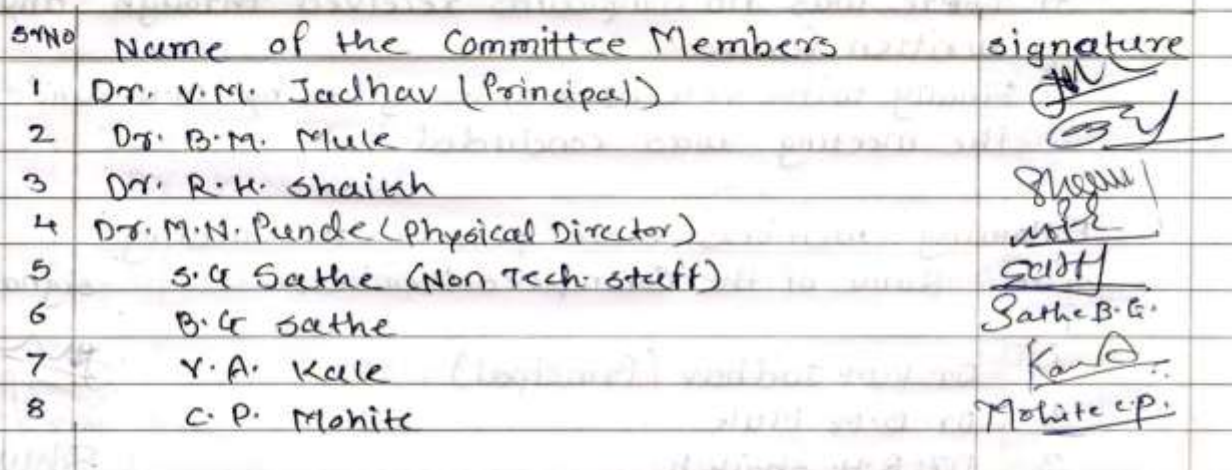 SrNO Name of the Committee Members signature
1 Dr. V.M. Jadhav (Principal)
2 Dr. B.M. Mule
3 Dr. R.H. Shaikh
4 Dr. M.N. Punde (Physical Director)
5 S.G Sathe (Non Tech. staff)
6 B.G Sathe Sathe B.G.
7 Y.A. Kale
8 C.P. Mohite Mohite C.P.